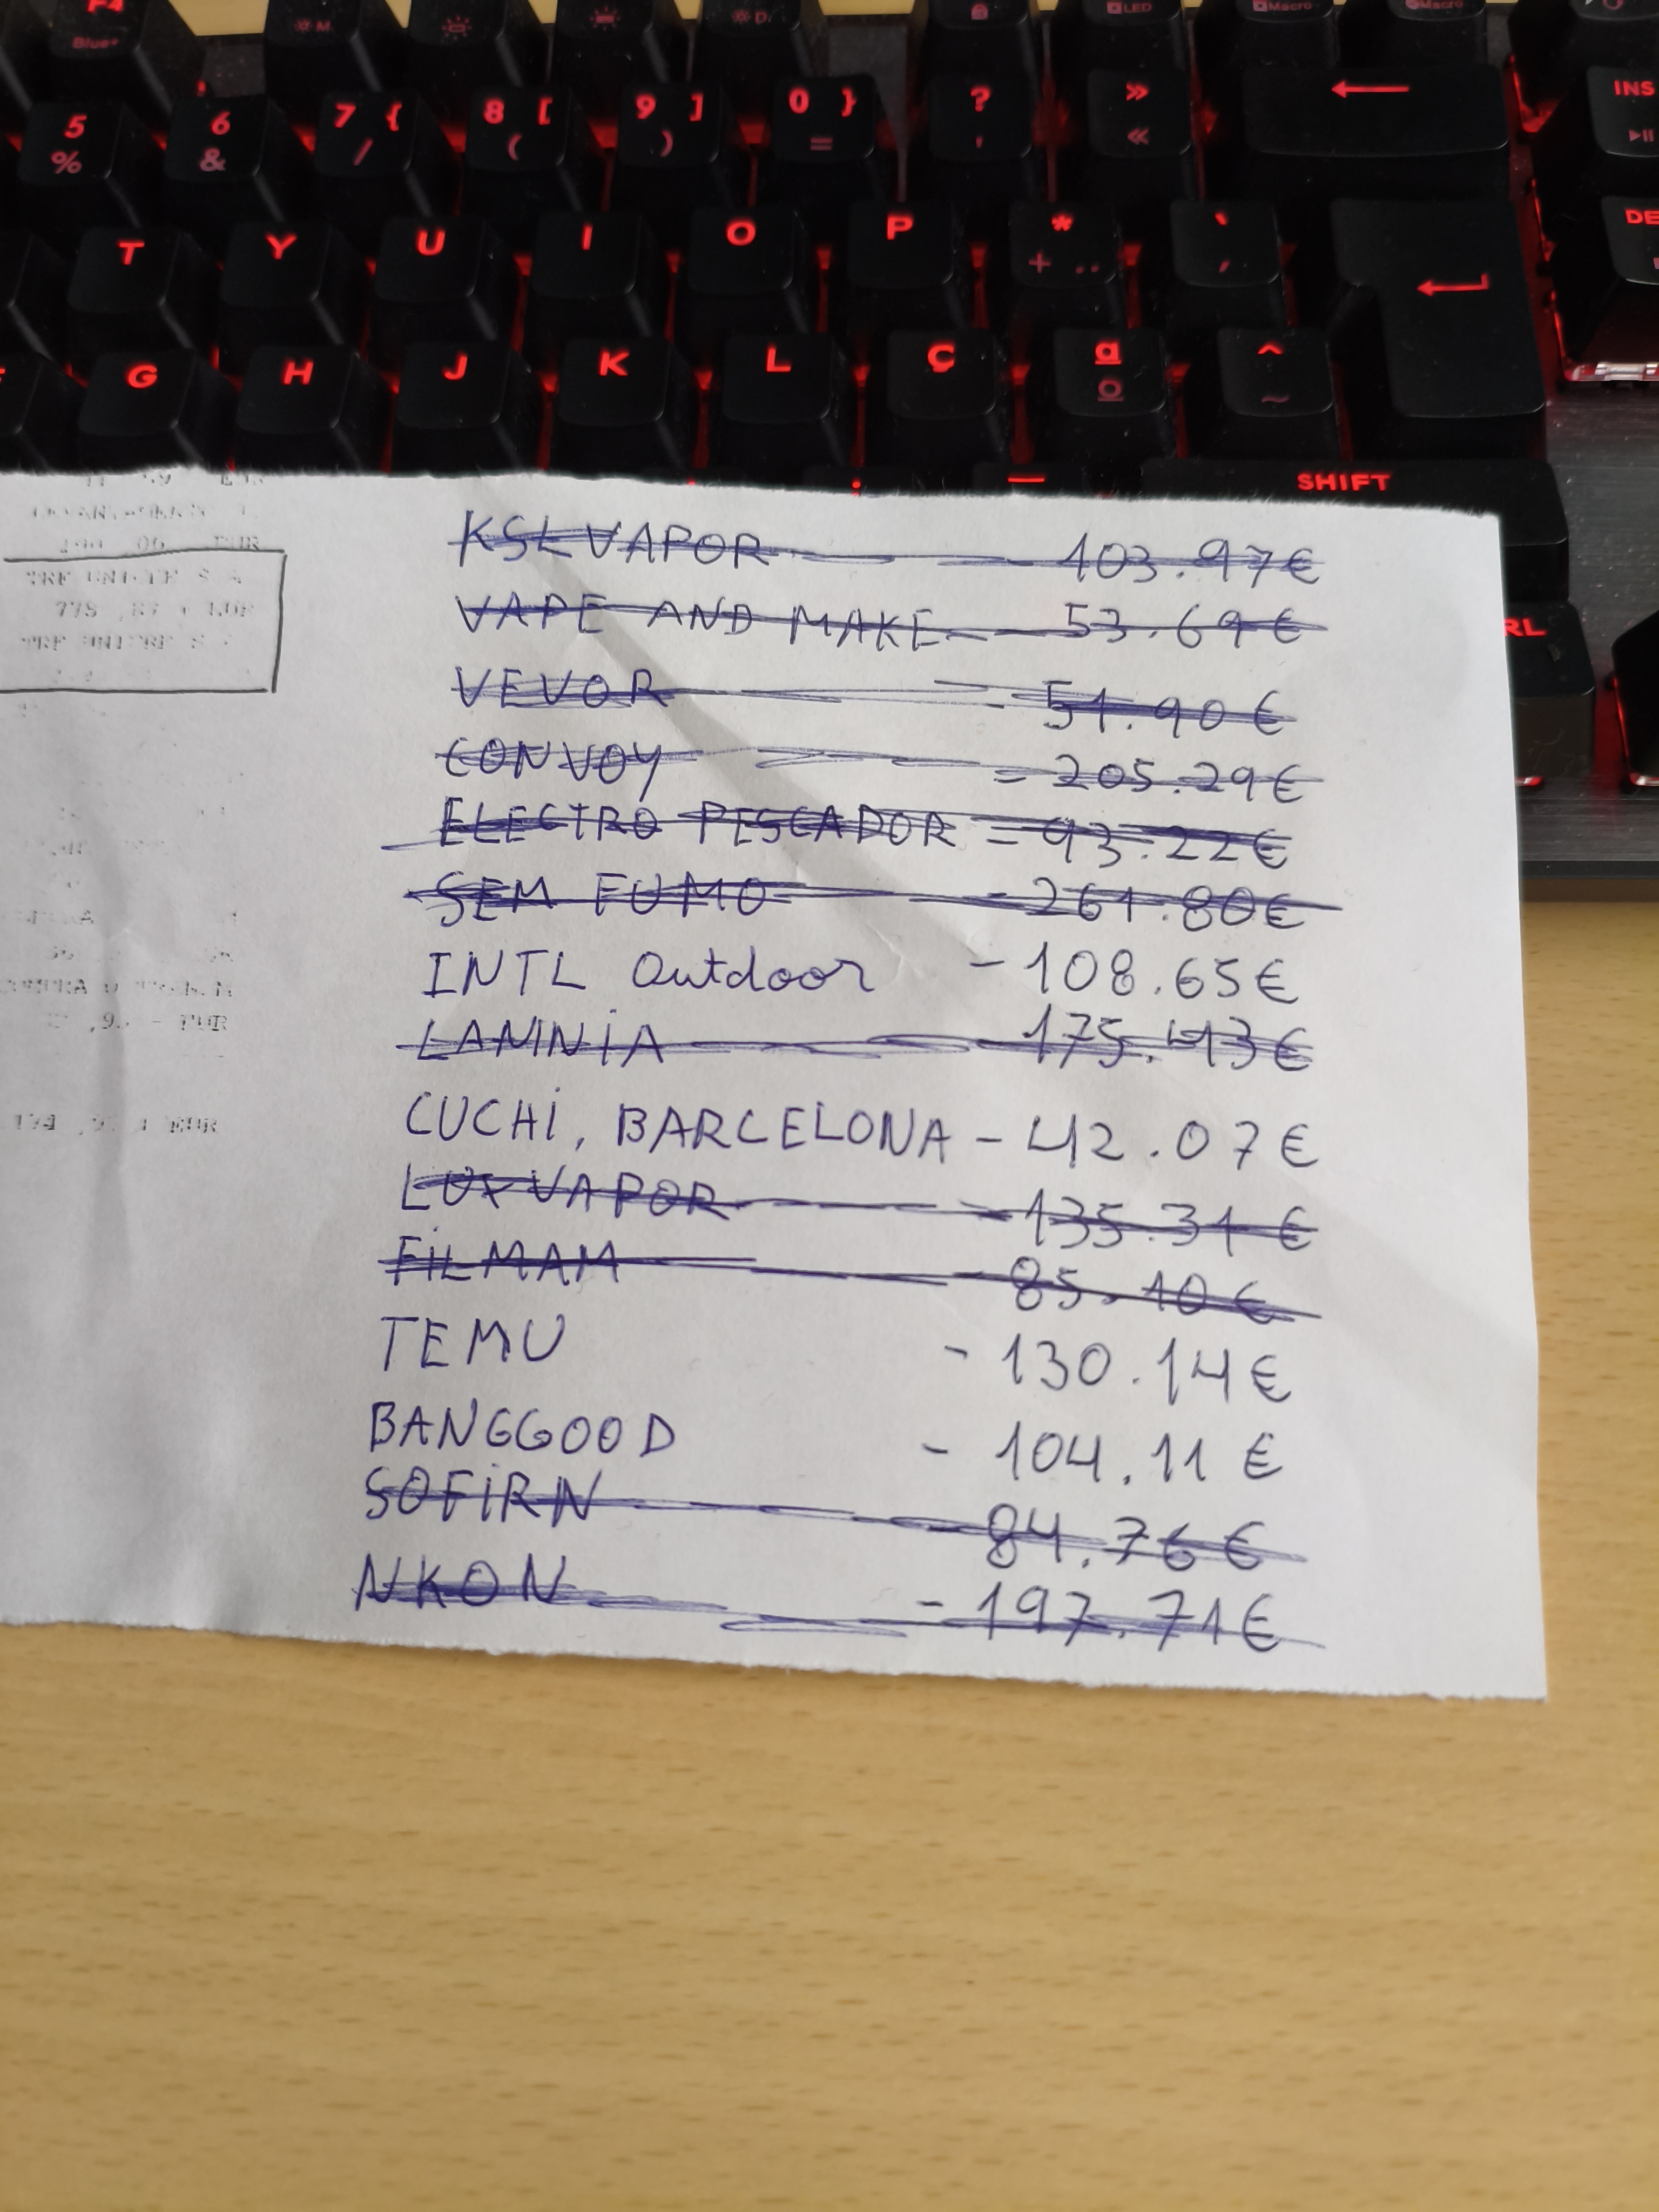 F4
Blue+
M
D
LED
Macro
Macro
5 %
6 &
7 { /
8 [ (
9 ] )
0 } =
? '
» «
←
INS
T Y U I O P * + ¨ ` ´
G H J K L Ç ª º ^ ~
SHIFT
KSL VAPOR - 103.97€
VAPE AND MAKE - 53.69€
VEVOR - 51.90€
CONVOY - 205.29€
ELECTRO PESCADOR - 93.22€
SEM FUMO - 261.80€
INTL Outdoor - 108.65€
LAMNIA - 175.43€
CUCHI, BARCELONA - 42.07€
LUXVAPOR - 135.31€
FILMAM - 85.10€
TEMU - 130.14€
BANGGOOD - 104.11€
SOFIRN - 84.76€
NKON - 197.71€